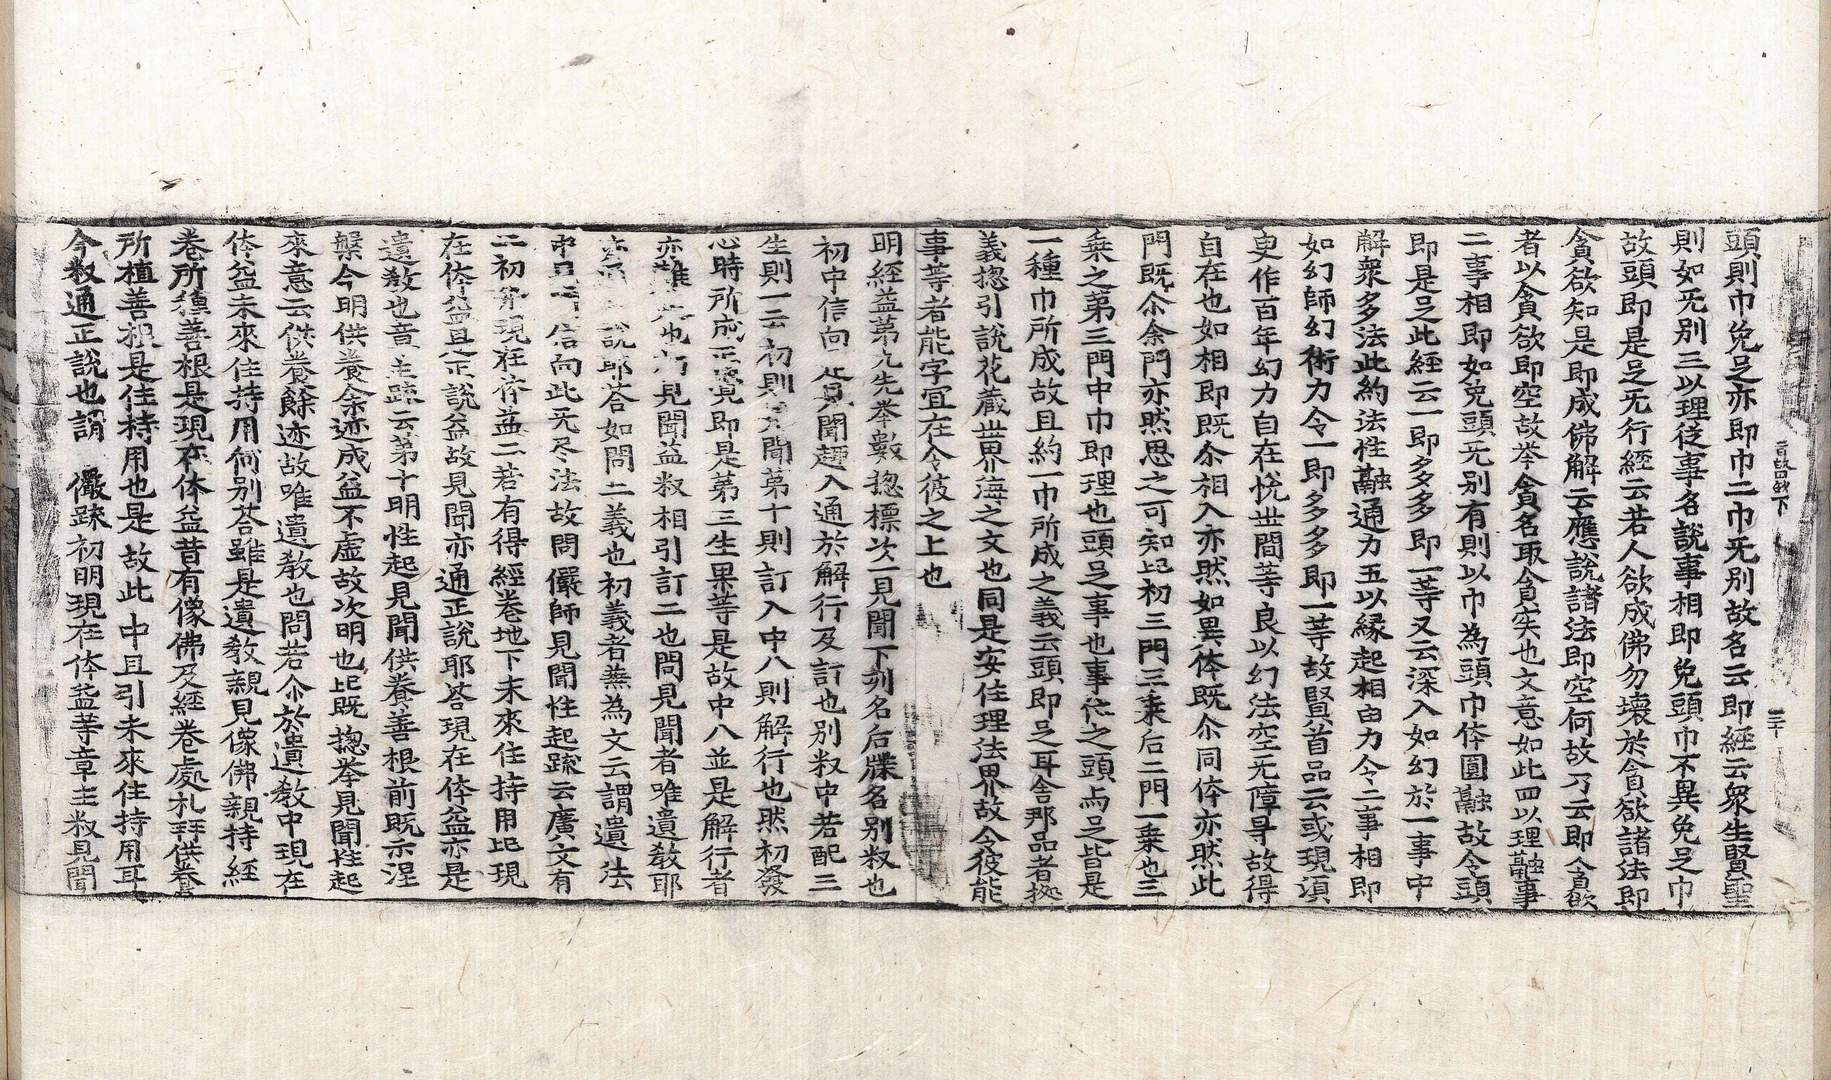 頭則巾兔足亦即巾二巾无別故名云即經云衆生賢聖
則如无別三以理從事名說事相即兔頭巾不異兔足巾
故頭即是足无行經云若人欲成佛勿壞於貪欲諸法即
貪欲知是即成佛解云應說諸法即空何故乃云即貪欲
者以貪欲即空故举貪名取貪实也文意如此四以理融事
二事相即如兔頭无別有則以巾為頭巾体圓融故令頭
即是足此經云一即多多即一等又云深入如幻於一事中
解衆多法此約法性融通力五以緣起相由力令二事相即
如幻師幻術力令一即多多即一等故賢首品云或現湏
臾作百年幻力自在悅世間等良以幻法空无障㝵故得
自在也如相即既尒相入亦然如異体既尒同体亦然此
門既尒余門亦然思之可知上初三門三乗后二門一乗也三
乗之第三門中巾即理也頭足事也事依之頭与足皆是
一種巾所成故且約一巾所成之義云頭即足耳舍那品者挩
義揔引說花藏世界海之文也同是安住理法界故令彼能
事等者能字宜在令彼之上也
明經益第九先举數揔標次一見聞下列名后牒名別敘也
初中信向 見聞趣入通於解行及訂也別敘中若配三
生則一云初則 聞第十則訂入中八則解行也然初發
心時所成正覺即是第三生果等是故中八並是解行者
亦 也 見聞益敘相引訂二也問見聞者唯遺教耶
說耶答如問二義也初義者無為文云謂遺法
中 信向此无尽法故問儼師見聞性起䟽云廣文有
二初 現在体益二若有得經卷地下未來住持用上現
在体益且 正說益故見聞亦通正說耶答現在体益亦是
遺教也章主䟽云第十明性起見聞供養善根前既示涅
槃今明供養余迹成益不虛故次明也上既揔举見聞性起
來意云供養餘迹故唯遺教也問若尒於遺教中現在
体益未來住持用何別荅雖是遺教親見像佛親持經
卷所種善根是現在体益昔有像佛及經卷處札拜供養
所植善根是住持用也是故此中且引未來住持用耳
今敘通正說也謂 儼䟽初明現在体益等章主敘見聞